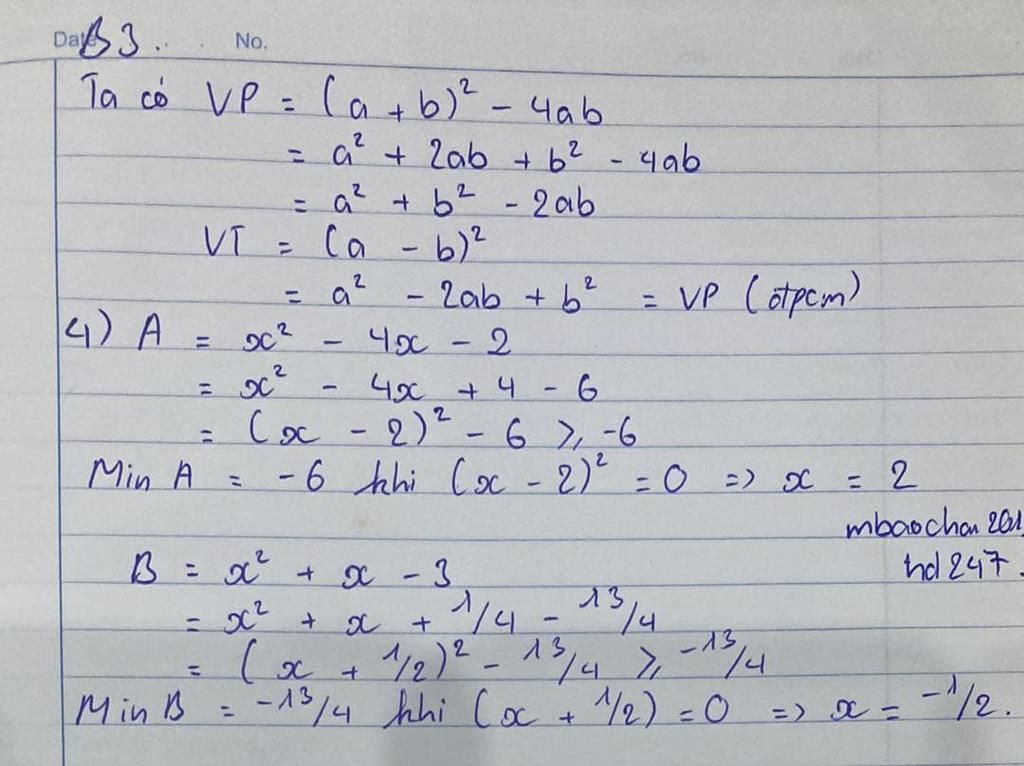 Date B3 .. . No.
Ta có VP = (a + b)² - 4ab
= a² + 2ab + b² - 4ab
= a² + b² - 2ab
VT = (a - b)²
= a² - 2ab + b² = VP (đpcm)
4) A = x² - 4x - 2
= x² - 4x + 4 - 6
= (x - 2)² - 6 ⩾ -6
Min A = -6 khi (x - 2)² = 0 => x = 2
mbaochau201
hd247.
B = x² + x - 3
= x² + x + 1/4 - 13/4
= (x + 1/2)² - 13/4 ⩾ -13/4
Min B = -13/4 khi (x + 1/2) = 0 => x = -1/2.